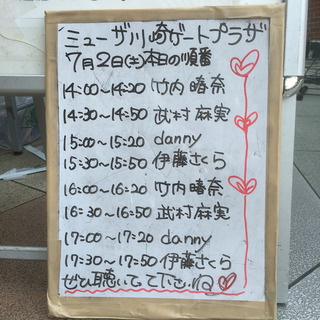 ミューザ川崎ゲートプラザ
7月2日(土)本日の順番
14:00〜14:20 竹内晴奈
14:30〜14:50 武村麻実
15:00〜15:20 danny
15:30〜15:50 伊藤さくら
16:00〜16:20 竹内晴奈
16:30〜16:50 武村麻実
17:00〜17:20 danny
17:30〜17:50 伊藤さくら
ぜひ聴いて下さいね